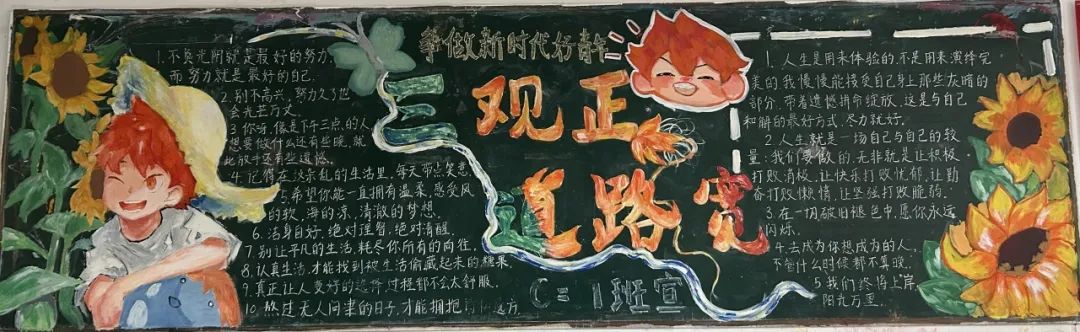 争做新时代好青年
三观正
道路宽
C=1班宣
1. 不负光阴就是最好的努力,
而努力就是最好的自己.
2. 别不高兴, 努力久了也
会光芒万丈.
3 你呀, 像是下午三点的人
想要做什么还有些晚, 就
此放弃还有些遗憾.
4. 记得在这杂乱的生活里, 每天带点笑意
5. 希望你能一直拥有温柔, 感受风
的软, 海的凉, 清澈的梦想.
6. 洁身自好, 绝对理智, 绝对清醒.
7. 别让平凡的生活, 耗尽你所有的向往.
8. 认真生活, 才能找到被生活偷藏起来的糖果.
9. 真正让人变好的选择, 过程都不会太舒服.
10. 熬过无人问津的日子, 才能拥抱诗和远方
1. 人生是用来体验的, 不是用来演绎完
美的, 我慢慢能接受自己身上那些灰暗的
部分, 带着遗憾拼命绽放, 这是与自己
和解的最好方式, 尽力就好.
2. 人生就是一场自己与自己的较
量: 我们要做的, 无非就是让积极
打败消极, 让快乐打败忧郁, 让勤
奋打败懒惰, 让坚强打败脆弱.
3 在一切破旧褪色中, 愿你永远
闪烁.
4. 去成为你想成为的人,
不管什么时候都不算晚.
5 我们终将上岸,
阳光万里.